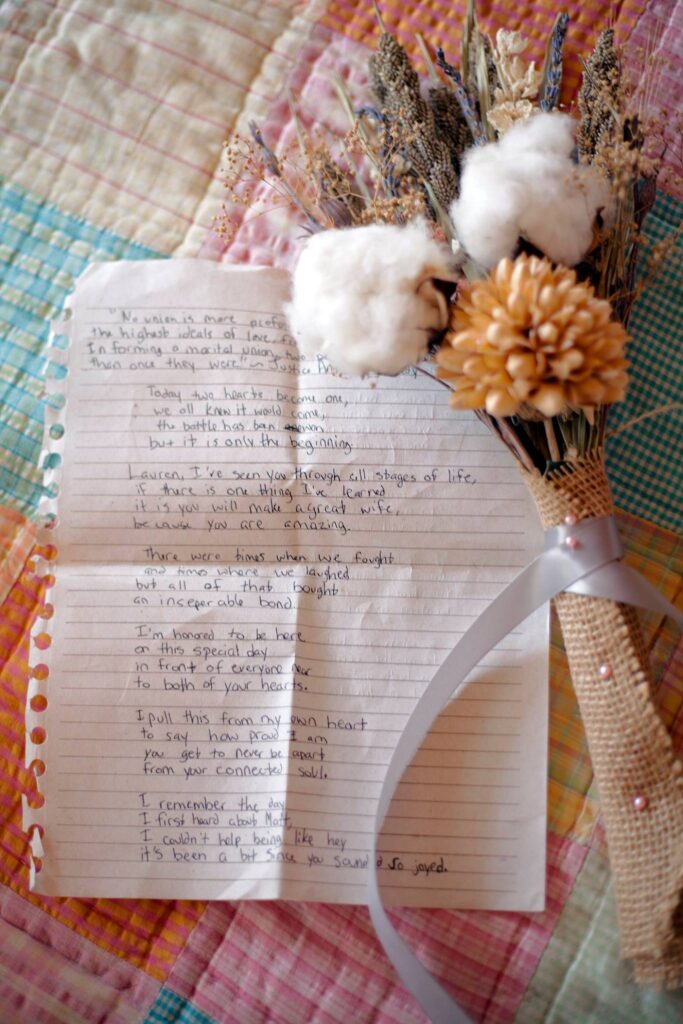 "No union is more profo
the highest ideals of love, f
In forming a marital union, two p
than once they were." ~ Justice
Today two hearts become one,
we all knew it would come,
the battle has been won
but it is only the beginning.
Lauren, I've seen you through all stages of life,
if there is one thing I've learned
it is you will make a great wife,
because you are amazing.
There were times when we fought
and times where we laughed
but all of that bought
an inseperable bond.
I'm honored to be here
on this special day
in front of everyone near
to both of your hearts.
I pull this from my own heart
to say how proud I am
you get to never be apart
from your connected soul.
I remember the day
I first heard about Matt,
I couldn't help being like hey
it's been a bit since you sound so joyed.